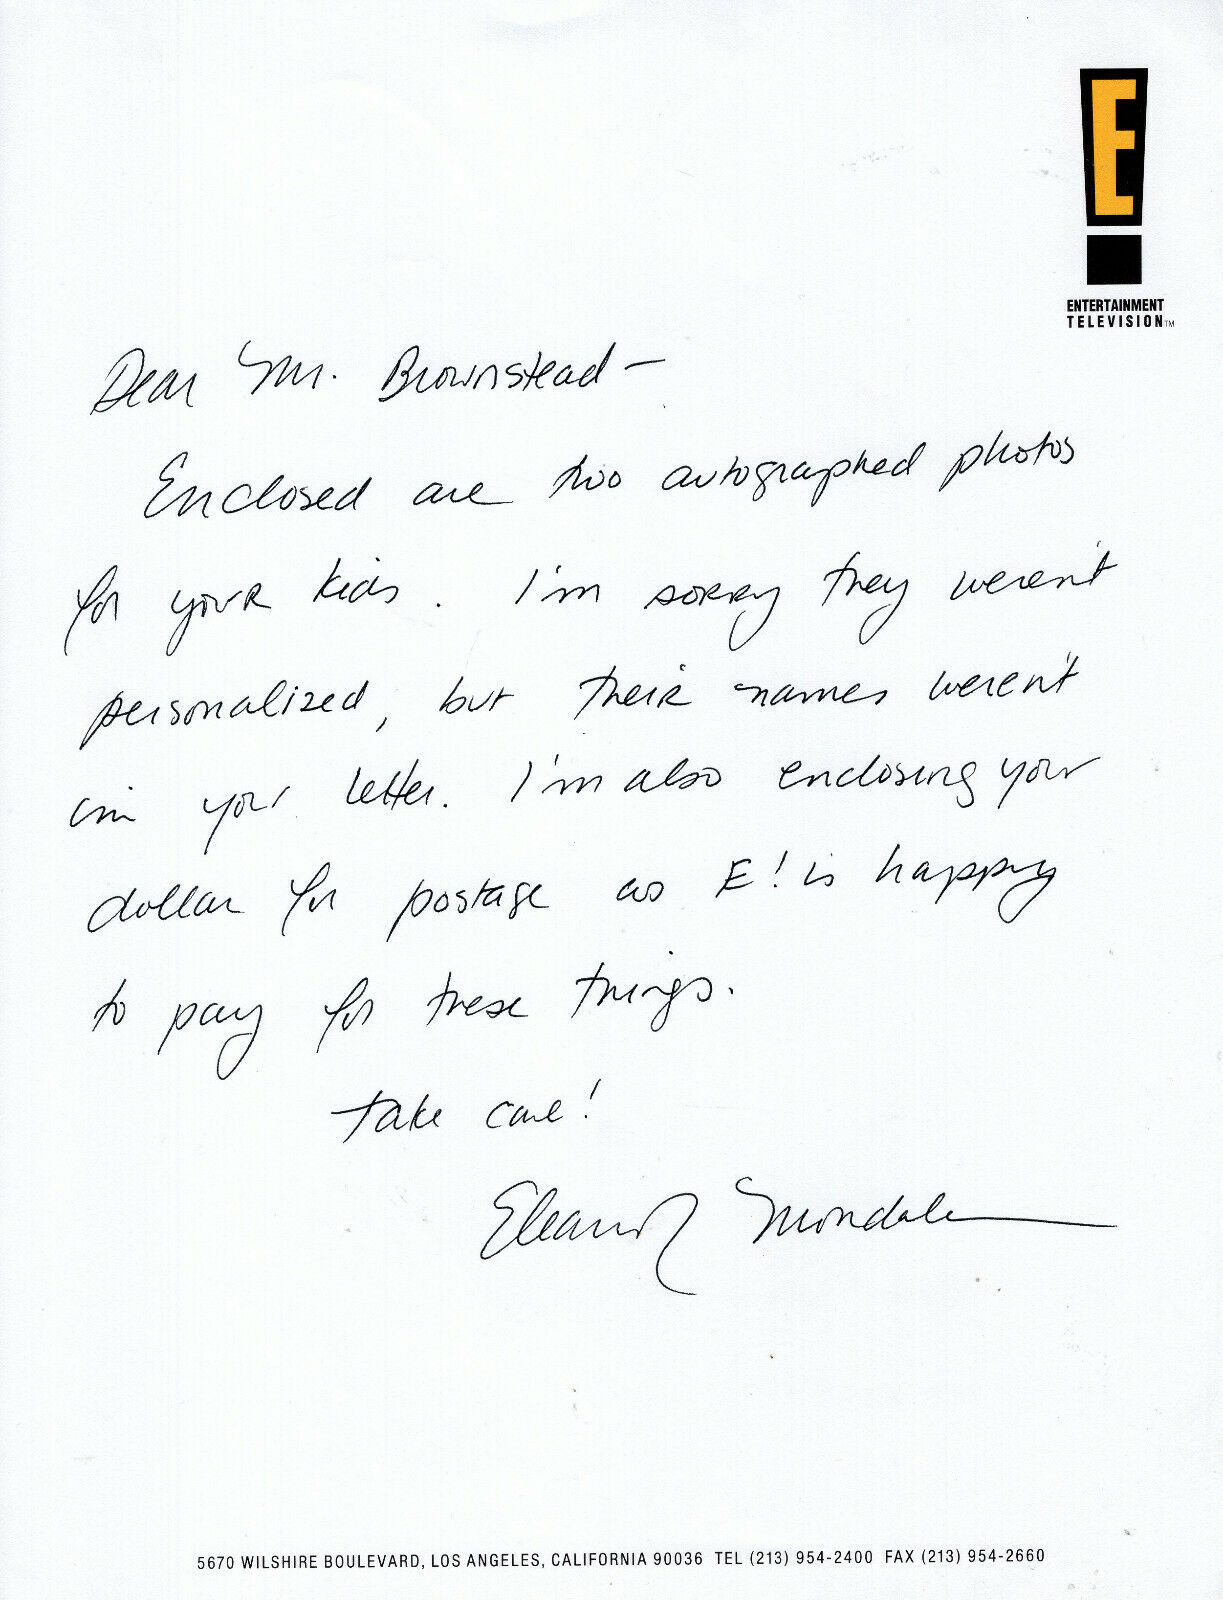 E!
ENTERTAINMENT
TELEVISION™
Dear Mr. Brownstead —
Enclosed are two autographed photos
for your kids. I'm sorry they weren't
personalized, but their names weren't
in your letter. I'm also enclosing your
dollar for postage as E! is happy
to pay for these things.
Take care!
Eleanor Mondale
5670 WILSHIRE BOULEVARD, LOS ANGELES, CALIFORNIA 90036 TEL (213) 954-2400 FAX (213) 954-2660